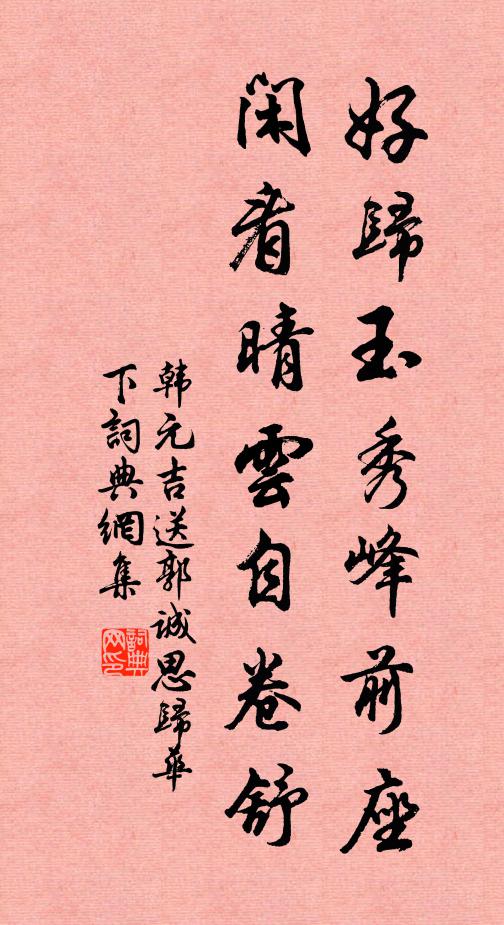 好歸玉秀峰前座
閑看晴雲自卷舒
韩元吉送郭誠思歸華
下詞典網集
詞典网印